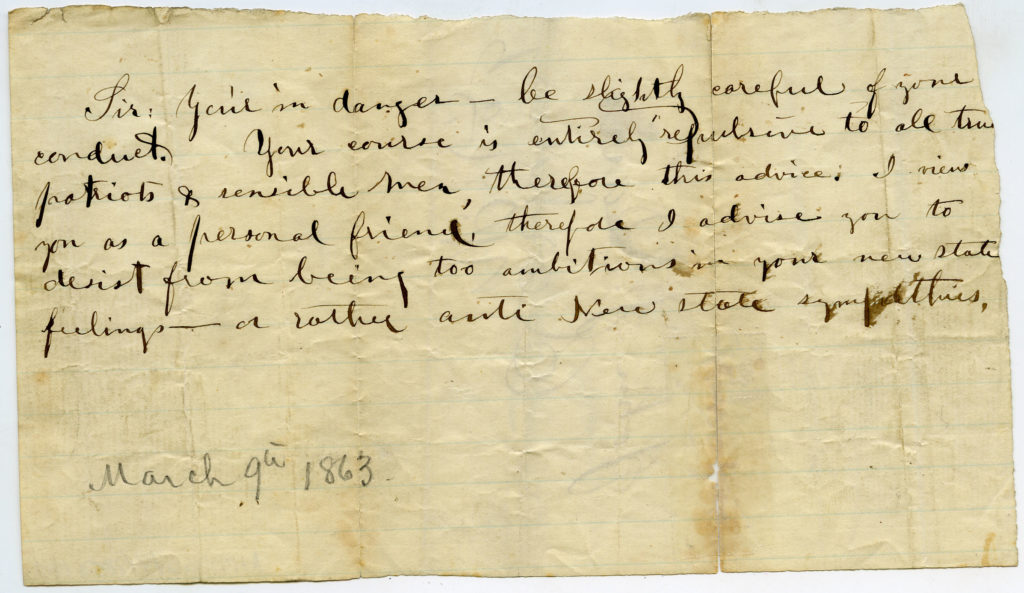 Sir: You're in danger — be slightly careful of your
conduct. Your course is entirely "repulsive to all true
patriots & sensible men, therefore this advice. I view
you as a personal friend, therefore I advise you to
desist from being too ambitious in your new state
feelings — or rather anti New state sympathies.
March 9th 1863